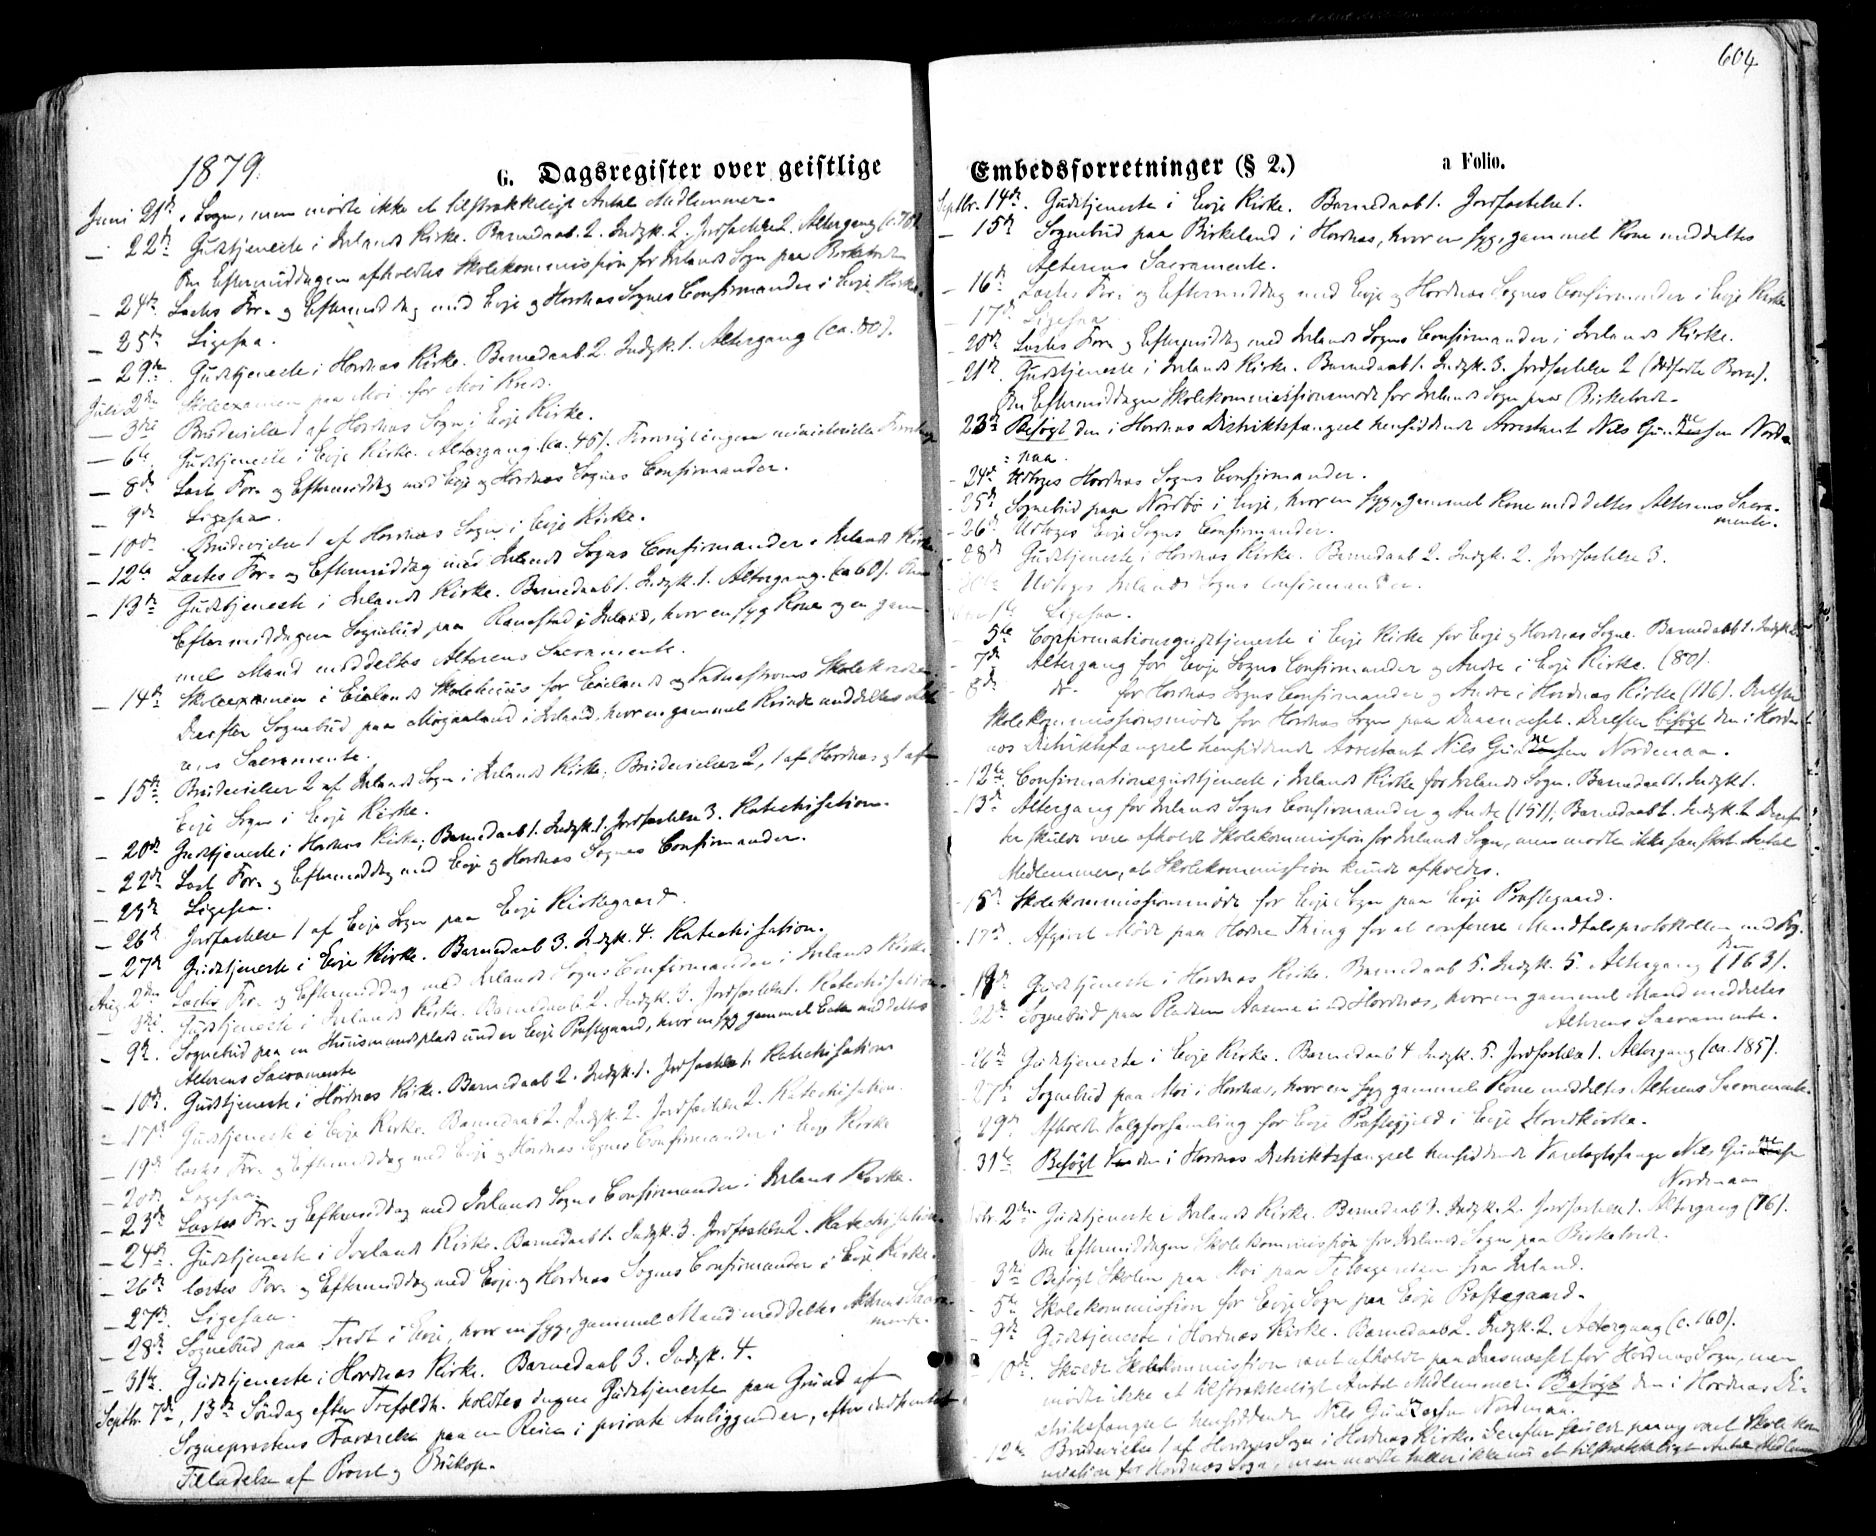 1879.
G. Dagsregister over geistlige
Juni 21de Sogn, men mødte ikke et tilstrækkeligt Antal Medlemmer.
– 22de Gudstjeneste i Iveland Kirke. Barnedaab 2. Indgk. 2. Jordfæstelse 2. Altergang (c. 70).
Om Eftermiddagen afholdtes Skolekommission for Ivelands Sogn paa Birketveit
– 24de Læstes For- og Eftermiddag med Evje og Hordnæs Sognes Confirmander i Evje Kirke.
– 25de Ligesaa.
– 29de Gudstjeneste i Hordnæs Kirke. Barnedaab 2. Indgk. 1. Altergang (ca. 80).
Juli 2den Skoleexamen paa Moi for Moi Kreds.
– 3die Brudevielse 1 af Hordnæs Sogn i Evje Kirke.
– 6te Gudstjeneste i Evje Kirke. Altergang (ca. 45).
– 8de Læst For- og Eftermiddag med Evje og Hordnæs Sognes Confirmander.
– 9de Ligesaa.
– 10de Brudevielse 1 af Hordnæs Sogn i Evje Kirke.
– 12te Læstes For- og Eftermiddag med Ivelands Sogns Confirmander i Ivelands Kirke.
– 13de Gudstjeneste i Ivelands Kirke. Barnedaab 1. Indgk. 1. Altergang (ca 60). Om
Eftermiddagen Sognebud paa i Iveland, hvor en syg Kone og en gam-
mel Mand meddeltes Alterens Sacramente.
– 14de Skoleexamen i Eielands Skolehuus for Eielands og Skolekredse.
Derefter Sognebud paa i Iveland, hvor en gammel Kvinde meddeltes Alte-
rens Sacramente.
– 15de Brudevielser 2 af Ivelands Sogn i Ivelands Kirke; Brudevielser 2, 1 af Hordnæs og 1 af
Evje Sogn i Evje Kirke.
– 20de Gudstjeneste i Hordnæs Kirke; Barnedaab 1. Indgk. 1. Jordfæstelse 3. Katechisation.
– 22de Læst For- og Eftermiddag med Evje og Hordnæs Sognes Confirmander.
– 23de Ligesaa.
– 26de Jordfæstelse 1 af Evje Sogn paa Evje Kirkegaard.
– 27de Gudstjeneste i Evje Kirke. Barnedaab 3. Indgk. 4. Katechisation.
Aug. 2den Læstes For- og Eftermiddag med Ivelands Sogns Confirmander i Ivelands Kirke.
– 3die Gudstjeneste i Ivelands Kirke. Barnedaab 2. Indgk. 3. Jordfæstelse 1. Katechisation.
– 9de Sognebud paa en Huusmandsplads under Evje Præstegaard, hvor en syg gammel Enke meddeltes
Alterens Sacramente
– 10de Gudstjeneste i Hordnæs Kirke. Barnedaab 2. Indgk. 1. Jordfæstelse 1. Katechisation
– 17de Gudstjeneste i Evje Kirke. Barnedaab 2. Indgk. 2. Jordfæstelse 2. Katechisation.
– 19de Læstes For- og Eftermiddag med Evje og Hordnæs Sognes Confirmander i Evje Kirke
– 20de Ligesaa.
– 23de Læstes For- og Eftermiddag med Ivelands Sogns Confirmander i Ivelands Kirke.
– 24de Gudstjeneste i Ivelands Kirke. Barnedaab 1. Indgk. 3. Jordfæstelse 2. Katechisation.
– 26de Læstes For- og Eftermiddag med Evje og Hordnæs Sognes Confirmander i Evje Kirke.
– 27de Ligesaa.
– 28de Sognebud paa Tveit i Evje, hvor en syg, gammel Mand meddeltes Alterens Sacra-
mente.
– 31te Gudstjeneste i Hordnæs Kirke. Barnedaab 3. Indgk. 4.
Septbr. 7de, 13de Søndag efter Trefoldh. holdtes ingen Gudstjeneste paa Grund af
Sognepræstens Fraværelse paa en Reise i private Anliggender, efter indhentet
Tilladelse af Provst og Biskop.
604
Embedsforretninger (§ 2.) a Folio.
Septbr. 14de Gudstjeneste i Evje Kirke. Barnedaab 1. Jordfæstelse 1.
– 15de Sognebud paa Birkeland i Hordnæs, hvor en syg, gammel Kone meddeltes
Alterens Sacramente.
– 16de Læstes For- og Eftermiddag med Evje og Hordnæs Sognes Confirmander i Evje Kirke
– 17de Ligesaa.
– 20de Læstes For- og Eftermiddag med Ivelands Sogns Confirmander i Ivelands Kirke.
– 21de Gudstjeneste i Ivelands Kirke. Barnedaab 1. Indgk. 3. Jordfæstelse 2 (dødfødte Børn).
Om Eftermiddagen Skolekommissionsmøde for Ivelands Sogn paa Birketveit.
– 23de Besøgt den i Hordnæs Distriktsfængsel hensiddende Arrestant Nils Gunnesen Norde-
naa.
– 24de Udtoges Hordnæs Sogns Confirmander.
– 25de Sognebud paa Nordbø i Evje, hvor en syg, gammel Kone meddeltes Alterens Sacra-
mente.
– 26de Udtoges Evje Sogns Confirmander.
– 28de Gudstjeneste i Hordnæs Kirke. Barnedaab 2. Indgk. 2. Jordfæstelse 3.
Udtoges Ivelands Sogns Confirmander.
1te Ligesaa.
– 5te Confirmationsgudstjeneste i Evje Kirke for Evje og Hordnæs Sogne. Barnedaab 1. Indgk.
– 7de Altergang for Evje Sogns Confirmander og Andre i Evje Kirke. (80).
– 8de do. for Hordnæs Sogns Confirmander og Andre i Hordnæs Kirke (116). Derefter
Skolekommissionsmøde for Hordnæs Sogn paa Daasnæset. Derefter besøgt den i Hord-
næs Distriktsfængsel hensiddende Arrestant Nils Gunnesen Nordenaa.
– 12te Confirmationsgudstjeneste i Ivelands Kirke for Ivelands Sogn. Barnedaab 1. Indgk. 1.
– 13de Altergang for Ivelands Sogns Confirmander og Andre (151); Barnedaab 1. Indgk. 1. Deref-
ter skulde være afholdt Skolekommission for Ivelands Sogn, men mødte ikke saa stort Antal
Medlemmer, at Skolekommission kunde afholdes.
– 15de Skolekommissionsmøde for Evje Sogn paa Evje Præstegaard.
– 17de Afgivet Møde paa Høste Thing for at conferere Mandtalsprotokollen med Fog-
den
– 19de Gudstjeneste i Hordnæs Kirke. Barnedaab 5. Indgk. 5. Altergang (163).
– 22de Sognebud paa Pladsen Aasene i Hordnæs, hvor en gammel Mand meddeltes
Alterens Sacramente.
– 26de Gudstjeneste i Evje Kirke. Barnedaab 4. Indgk. 5. Jordfæstelse 1. Altergang (ca. 185).
– 27de Sognebud paa Moi i Hordnæs, hvor en syg gammel Kone meddeltes Alterens Sacramente.
– 29de Afholdt Valgforsamling for Evje Præstegjeld i Evje Hovedkirke.
– 31te Besøgt den i Hordnæs Distriktsfængsel hensiddende Varetægtsfange Nils Gunnesen
Nordenaa
2den Gudstjeneste i Ivelands Kirke. Barnedaab 1. Indgk. 2. Jordfæstelse 1. Altergang (76).
Om Eftermiddagen Skolekommission for Ivelands Sogn paa Birketveit.
– 3die Besøgt Skolen paa Moi paa Tilbagereisen fra Iveland.
– 5te Skolekommission for Evje Sogn paa Evje Præstegaard.
– 9de Gudstjeneste i Hordnæs Kirke. Barnedaab 2. Indgk. 2. Altergang (c. 160).
– 10de Skulde Skolekommission været afholdt paa Daasnæset for Hordnæs Sogn, men
mødte ikke et tilstrækkeligt Antal Medlemmer. Besøgt den i Hordnæs Di-
striktsfængsel hensiddende Nils Gunnesen Nordenaa.
– 12te Brudevielse 1 af Hordnæs Sogn i Hordnæs Kirke. Derefter skulde paany været Skolekom-
mission for Hordnæs Sogn, men mødte heller ikke nu et tilstrækkeligt Antal Medlem-